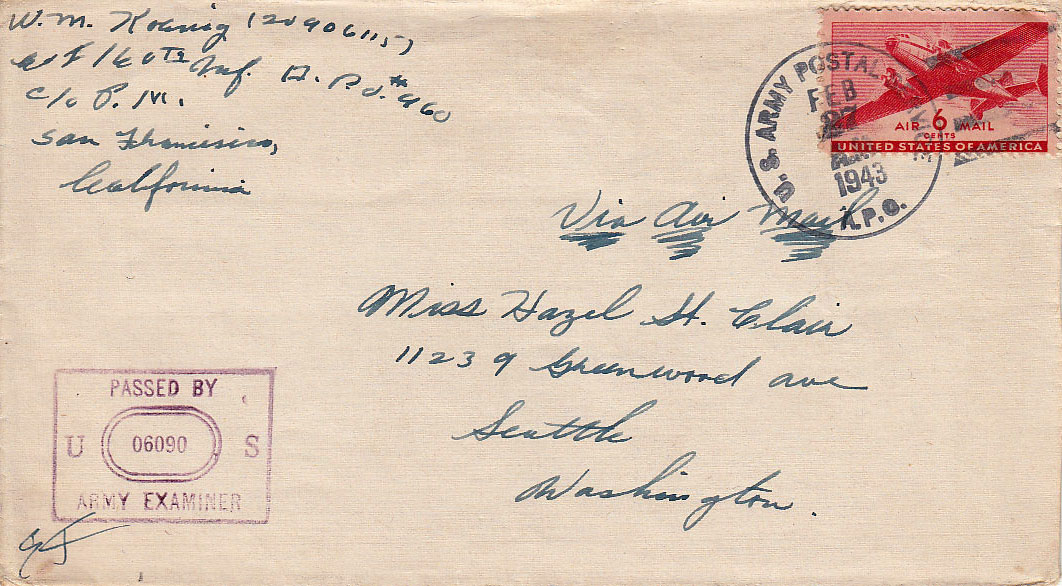 W. M. Koenig (20906115)
160th Inf. A. P. O. #960
c/o P. M.
San Francisco,
California
U. S. ARMY POSTAL SERVICE
FEB
27
1943
A.P.O.
AIR 6 MAIL
CENTS
UNITED STATES OF AMERICA
Via Air Mail
Miss Hazel St. Clair
11239 Greenwood ave
Seattle
Washington.
PASSED BY
U 06090 S
ARMY EXAMINER